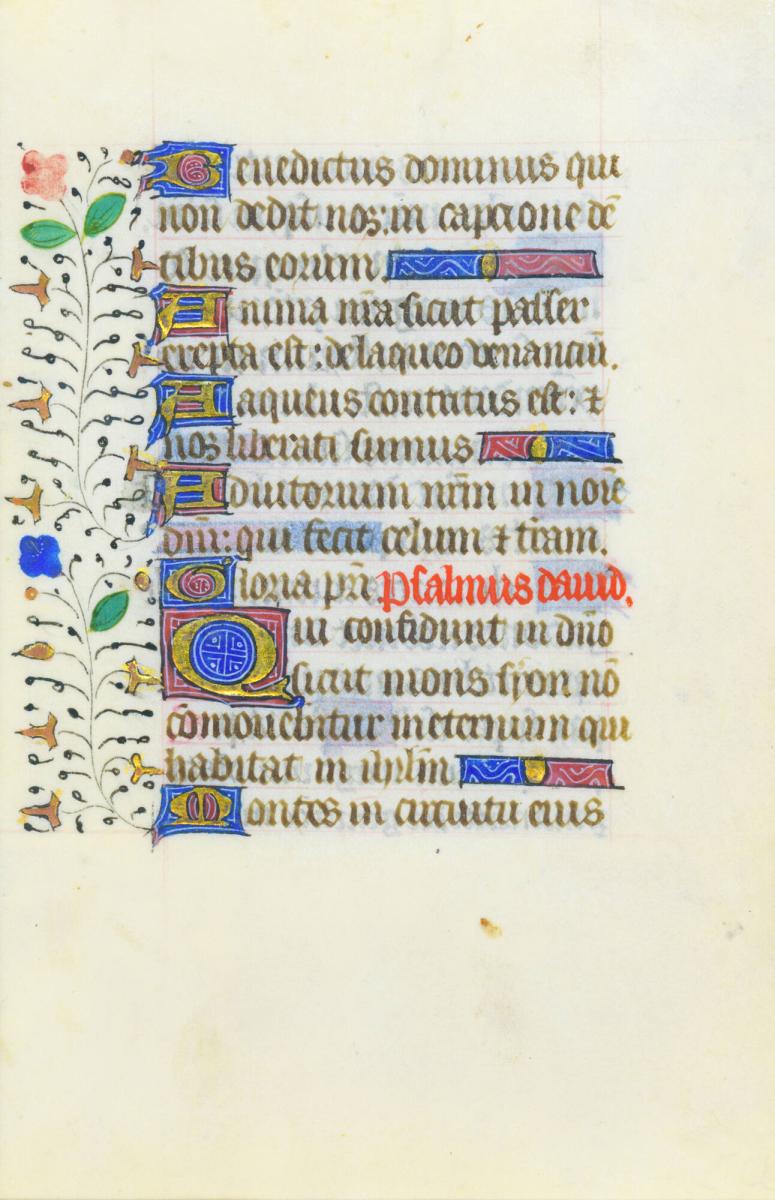 Benedictus dominus qui
non dedit nos: in capcione dē
tibus eorum.
Anima nr̄a sicut passer
erepta est: de laqueo venanciū.
Aaqueus contatus est: ⁊
nos liberati sumus
Adiutorium nr̄m in noīe
dnī: qui fecit celum ⁊ tr̄am.
Gloria pr̄i Psalmus dauid.
Qui confidunt in dn̄o
sicut mons syon nō
cōmouebitur in eternum qui
habitat in ihrlm̄
Montes in circuitu eius